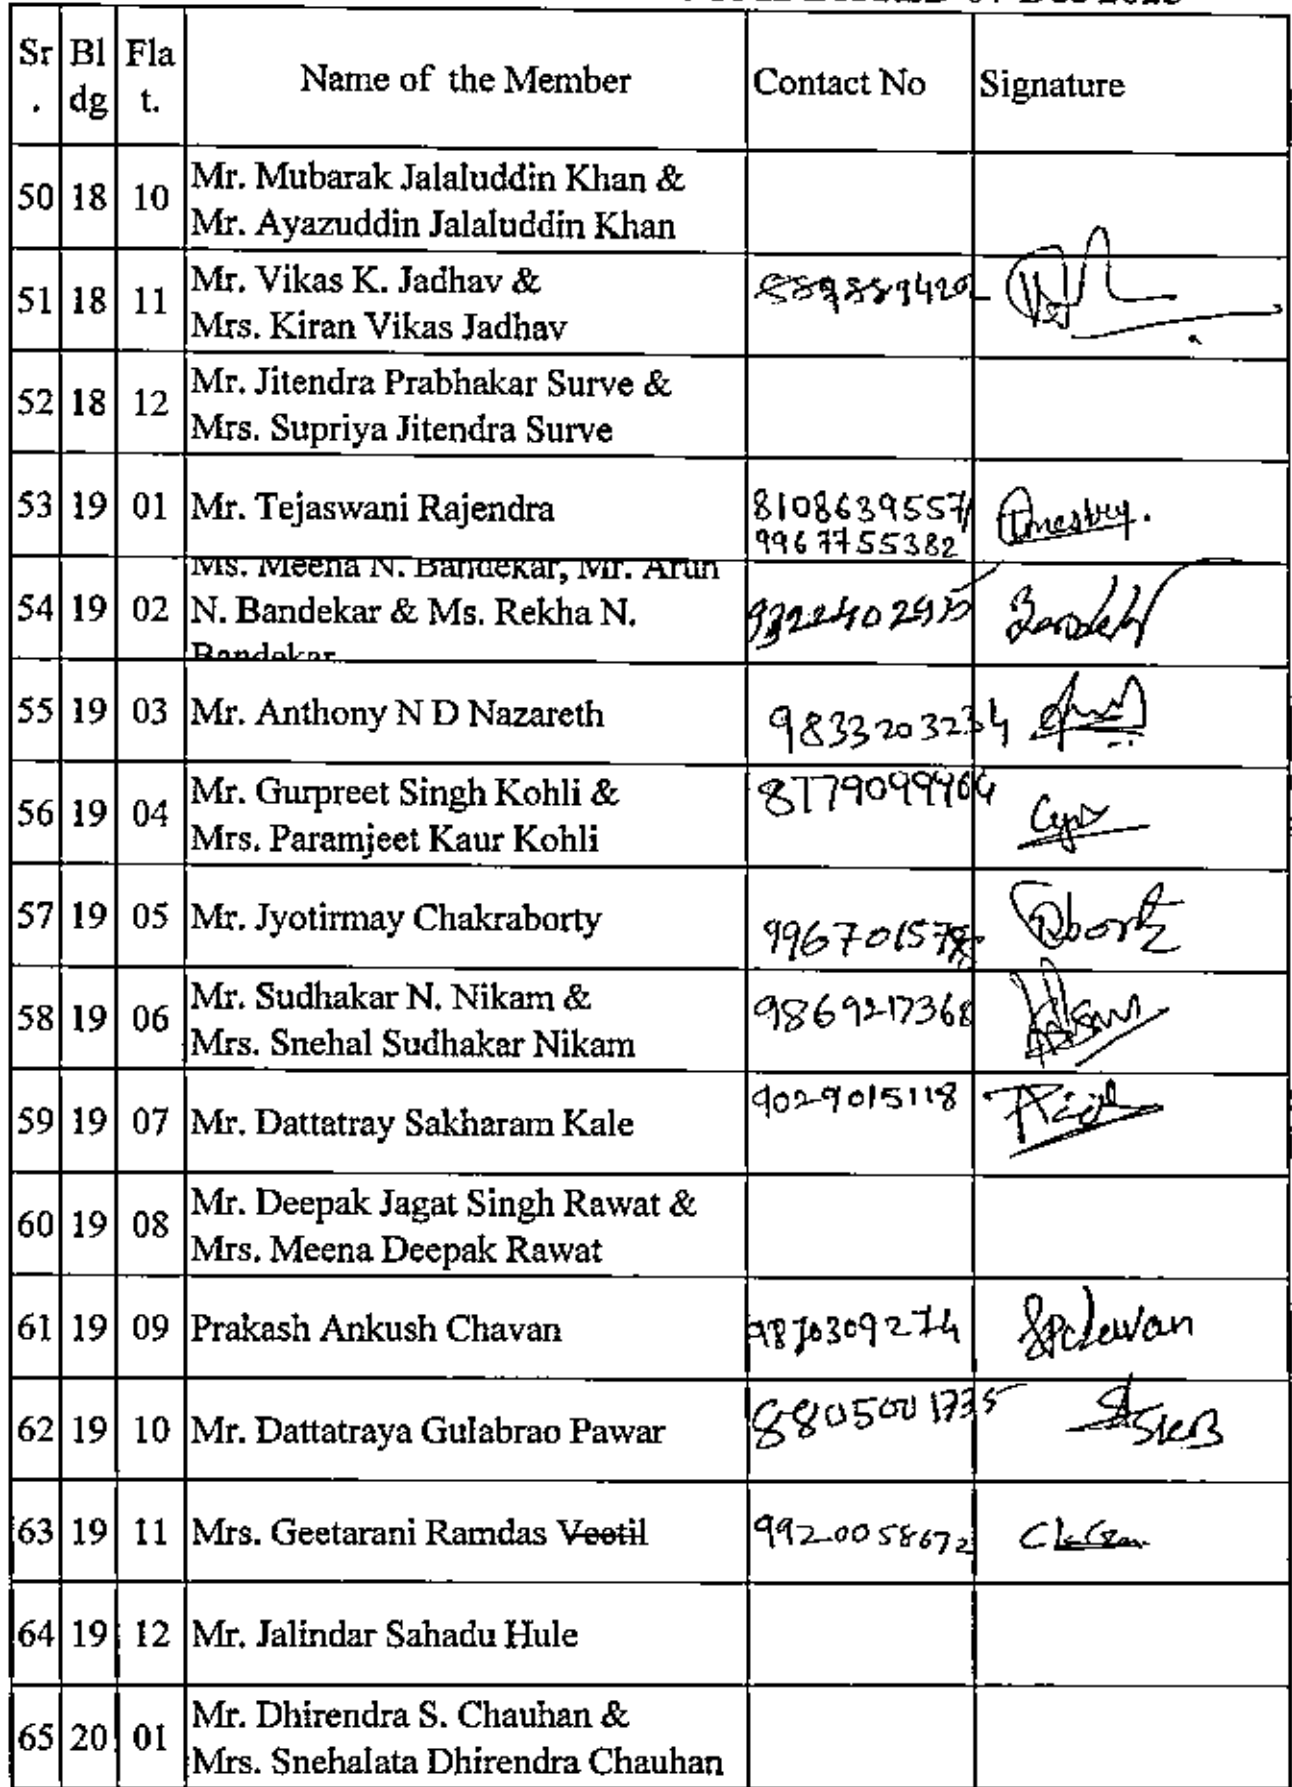 Sr Bl Fla Name of the Member Contact No Signature
. dg t.
50 18 10 Mr. Mubarak Jalaluddin Khan &
Mr. Ayazuddin Jalaluddin Khan
51 18 11 Mr. Vikas K. Jadhav &
Mrs. Kiran Vikas Jadhav
52 18 12 Mr. Jitendra Prabhakar Surve &
Mrs. Supriya Jitendra Surve
53 19 01 Mr. Tejaswani Rajendra 8108639557/
9967755382
Ms. Meena N. Bandekar, Mr. Arun
54 19 02 N. Bandekar & Ms. Rekha N.
Bandekar
55 19 03 Mr. Anthony N D Nazareth 9833203234
56 19 04 Mr. Gurpreet Singh Kohli &
Mrs. Paramjeet Kaur Kohli
57 19 05 Mr. Jyotirmay Chakraborty
58 19 06 Mr. Sudhakar N. Nikam & 9869217368
Mrs. Snehal Sudhakar Nikam
59 19 07 Mr. Dattatray Sakharam Kale 9029015118
60 19 08 Mr. Deepak Jagat Singh Rawat &
Mrs. Meena Deepak Rawat
61 19 09 Prakash Ankush Chavan 9870309274
62 19 10 Mr. Dattatraya Gulabrao Pawar 8805001735
63 19 11 Mrs. Geetarani Ramdas Veetil 9920058672
64 19 12 Mr. Jalindar Sahadu Hule
65 20 01 Mr. Dhirendra S. Chauhan &
Mrs. Snehalata Dhirendra Chauhan